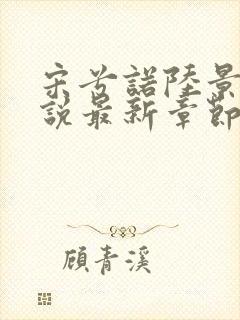 宋兮諾陸景
說最新章節
顧青溪